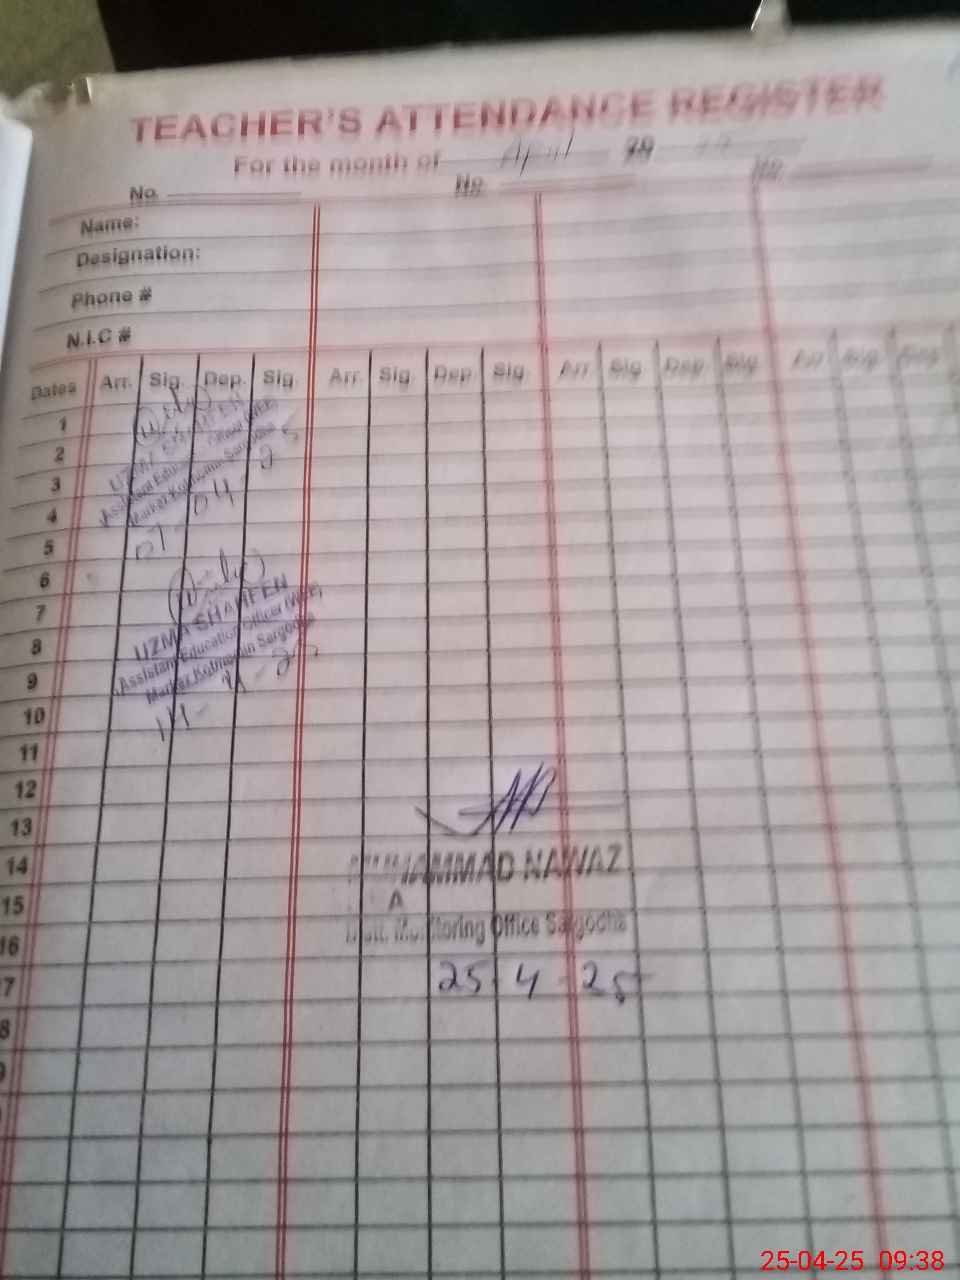 TEACHER'S ATTENDANCE REGISTER
For the month of April 20
No. No. No.
Name:
Designation:
Phone #
N.I.C #
Dates Arr. Sig. Dep. Sig. Arr. Sig. Dep. Sig. Arr. Sig. Dep. Sig. Arr. Sig. Dep.
1
2
UZMA SHAHEEN
3
Assistant Education Officer (WEE)
Markaz Kotmomin Sargodha
4
07-04-25
5
6
7
UZMA SHAHEEN
8
Assistant Education Officer (WEE)
9
Markaz Kotmomin Sargodha
10
11
12
13
14
MUHAMMAD NAWAZ
15
A
16
Distt. Monitoring Office Sargodha
7
25-4-25
8
9
25-04-25 09:38